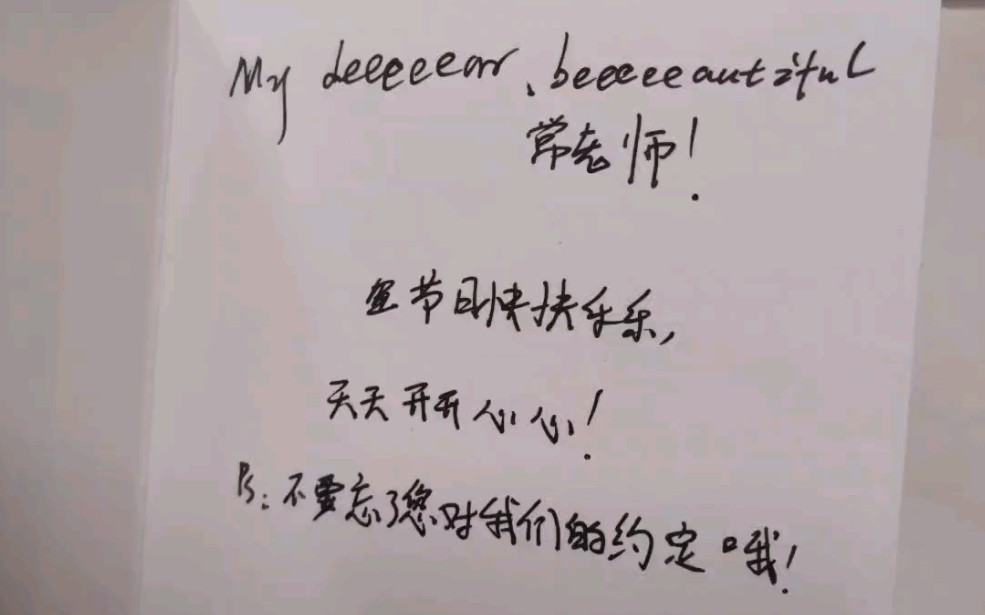 My deeeeear, beeeeeautiful
常老师！
节日快快乐乐，
天天开开心心！
Ps：不要忘了您对我们的约定哦！